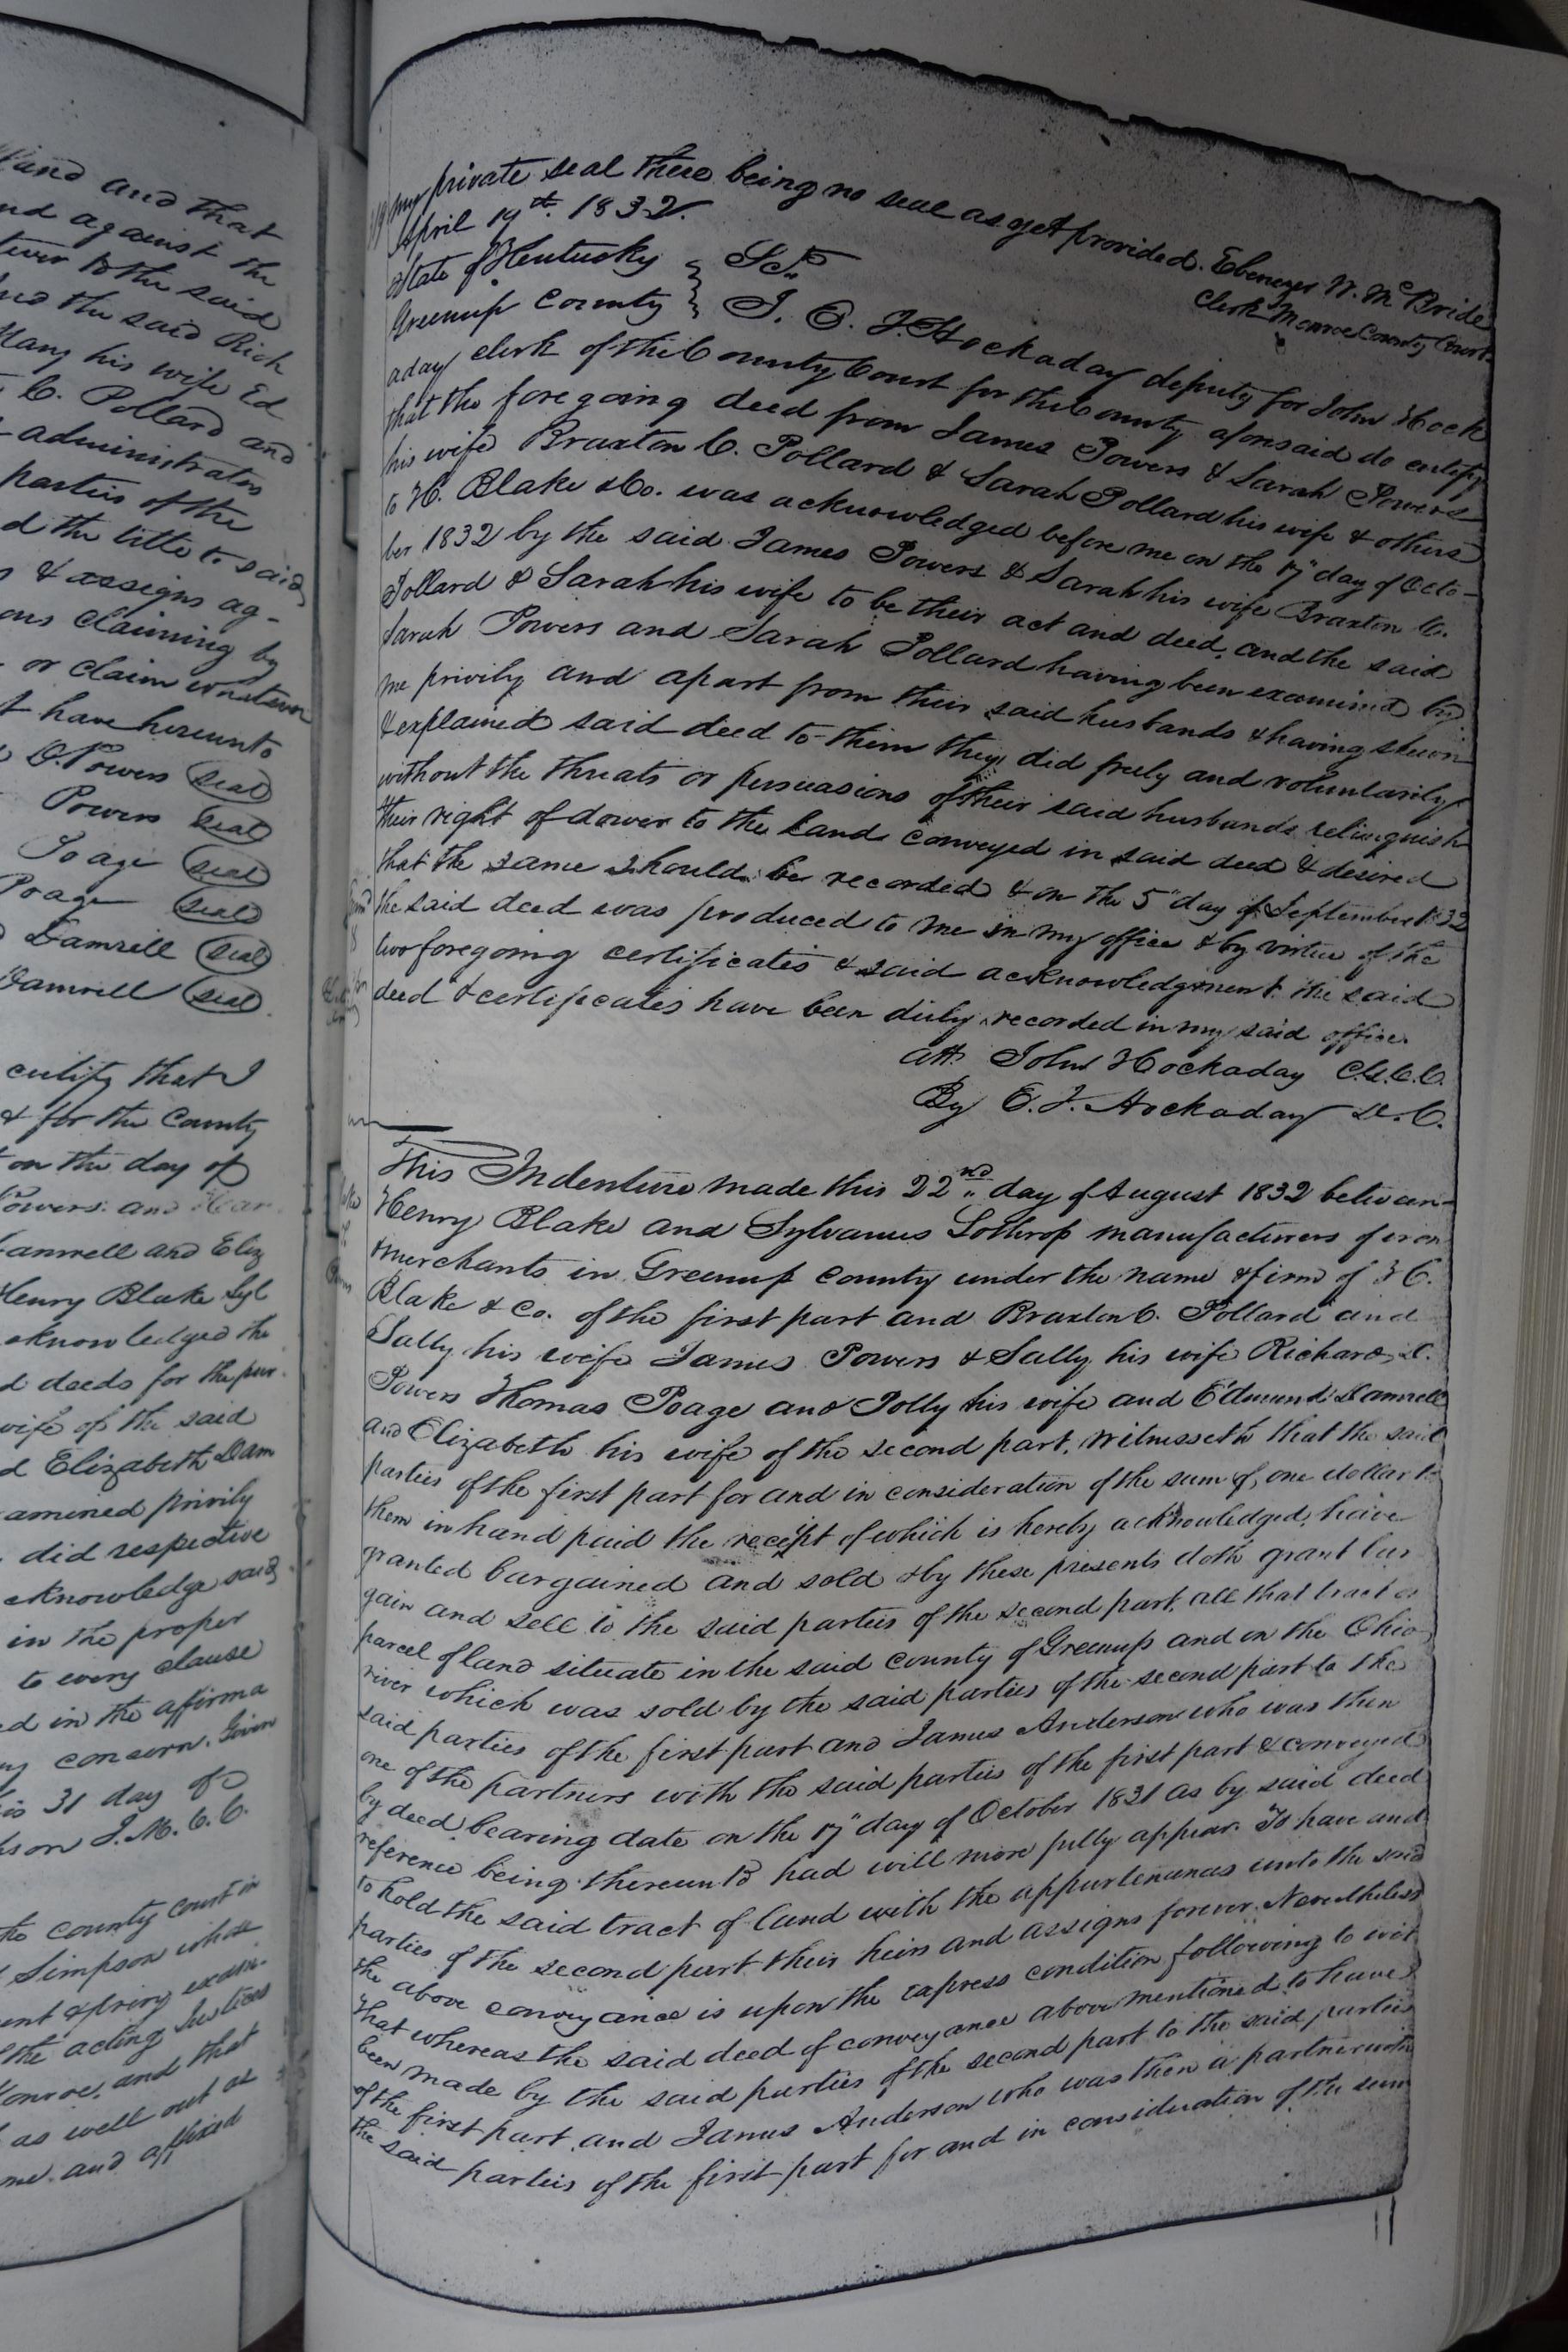 and that
nd against the
tever to the said
and the said Rich
Mary his wife Ed
C. Pollard and
administrators
parties of the
d the title to said
s & assigns ag-
ons claiming by
or claim whatever
t have hereunto
O. Powers seal
Powers seal
Poage seal
Poage seal
Damrell seal
Damrell seal
certify that I
& for the County
on the day of
Powers and
amrell and Eliz
Henry Blake Syl
cknowledged the
d deeds for the pur-
wife of the said
d Elizabeth Dam
amined privily
did respective
cknowledge said
in the proper
to every clause
ed in the affirma
ny concern. Given
is 31 day of
son J. M. C. C.
the county court in
Simpson whose
ent & privy exam-
the acting Justices
Monroe, and that
as well out as
me and affixed
my private seal there being no seal as yet provided. Ebenezer W. McBride
April 19th. 1832. Clerk Monroe County Court
State of Kentucky } Sct.
Greenup County } I. E. J. Hockaday deputy for John Hock
aday clerk of the County Court for the County aforesaid do certify
that the foregoing deed from James Powers & Sarah Powers
his wife Braxton C. Pollard & Sarah Pollard his wife & others
to H. Blake & Co. was acknowledged before me on the 17" day of Octo-
ber 1832 by the said James Powers & Sarah his wife Braxton C.
Pollard & Sarah his wife to be their act and deed, and the said
Sarah Powers and Sarah Pollard having been examined by
me privily and apart from their said husbands & having shewn
& explained said deed to them they did freely and voluntarily
without the threats or persuasions of their said husbands relinquish
their right of dower to the land conveyed in said deed & desired
that the same should be recorded & on the 5" day of September 1832
the said deed was produced to me in my office & by virtue of the
two foregoing certificates & said acknowledgment the said
deed & certificates have been duly recorded in my said office.
att. John Hockaday C.G.C.C.
By E. J. Hockaday D.C.
This Indenture made this 22nd day of August 1832 between
Henry Blake and Sylvanus Lothrop manufacturers of iron
& merchants in Greenup County under the name & firm of H.
Blake & Co. of the first part and Braxton C. Pollard and
Sally his wife James Powers & Sally his wife Richard C.
Powers Thomas Poage and Polly his wife and Edmund Damrell
and Elizabeth his wife of the second part, Witnesseth that the said
parties of the first part for and in consideration of the sum of, one dollar to
them in hand paid the receipt of which is hereby acknowledged, have
granted bargained and sold & by these presents doth grant bar
gain and sell to the said parties of the second part, all that tract or
parcel of land situate in the said county of Greenup and on the Ohio
river which was sold by the said parties of the second part to the
said parties of the first part and James Anderson who was then
one of the partners with the said parties of the first part & conveyed
by deed bearing date on the 17" day of October 1831 as by said deed
reference being thereunto had will more fully appear. To have and
to hold the said tract of land with the appurtenances unto the said
parties of the second part their heirs and assigns forever. Nevertheless
the above conveyance is upon the express condition following to wit
That whereas the said deed of conveyance above mentioned to have
been made by the said parties of the second part to the said parties
of the first part and James Anderson who was then a partner with
the said parties of the first part for and in consideration of the sum